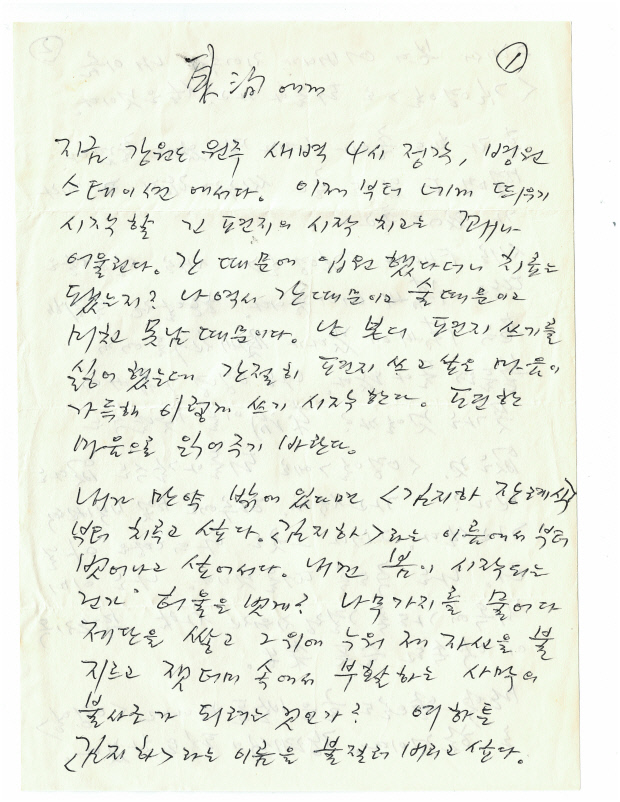 ①
東治 에게
지금 강원도 원주 새벽 4시 정각, 병원
스테이션 에서다. 이제부터 네게 띄우기
시작할 긴 편지의 시작 치고는 꽤나
어울린다. 간 때문에 입원했다더니 치료는
됐는지? 나 역시 간 때문이고 술 때문이고
미친 못난 때문이다. 난 본디 편지 쓰기를
싫어했는데 간절히 편지 쓰고 싶은 마음이
가득해 이렇게 쓰기 시작한다. 편한
마음으로 읽어주기 바란다.
내가 만약 밖에 있다면 <김지하 장례식>
부터 치루고 싶다. <김지하>라는 이름에서부터
벗어나고 싶어서다. 내겐 봄이 시작되는
건가 허물을 벗게? 나무가지를 물어다
제단을 쌓고 그 위에 누워 제 자신을 불
지르고 잿더미 속에서 부활하는 사막의
불사조가 되려는 것인가? 여하튼
<김지하>라는 이름을 불질러 버리고 싶다.